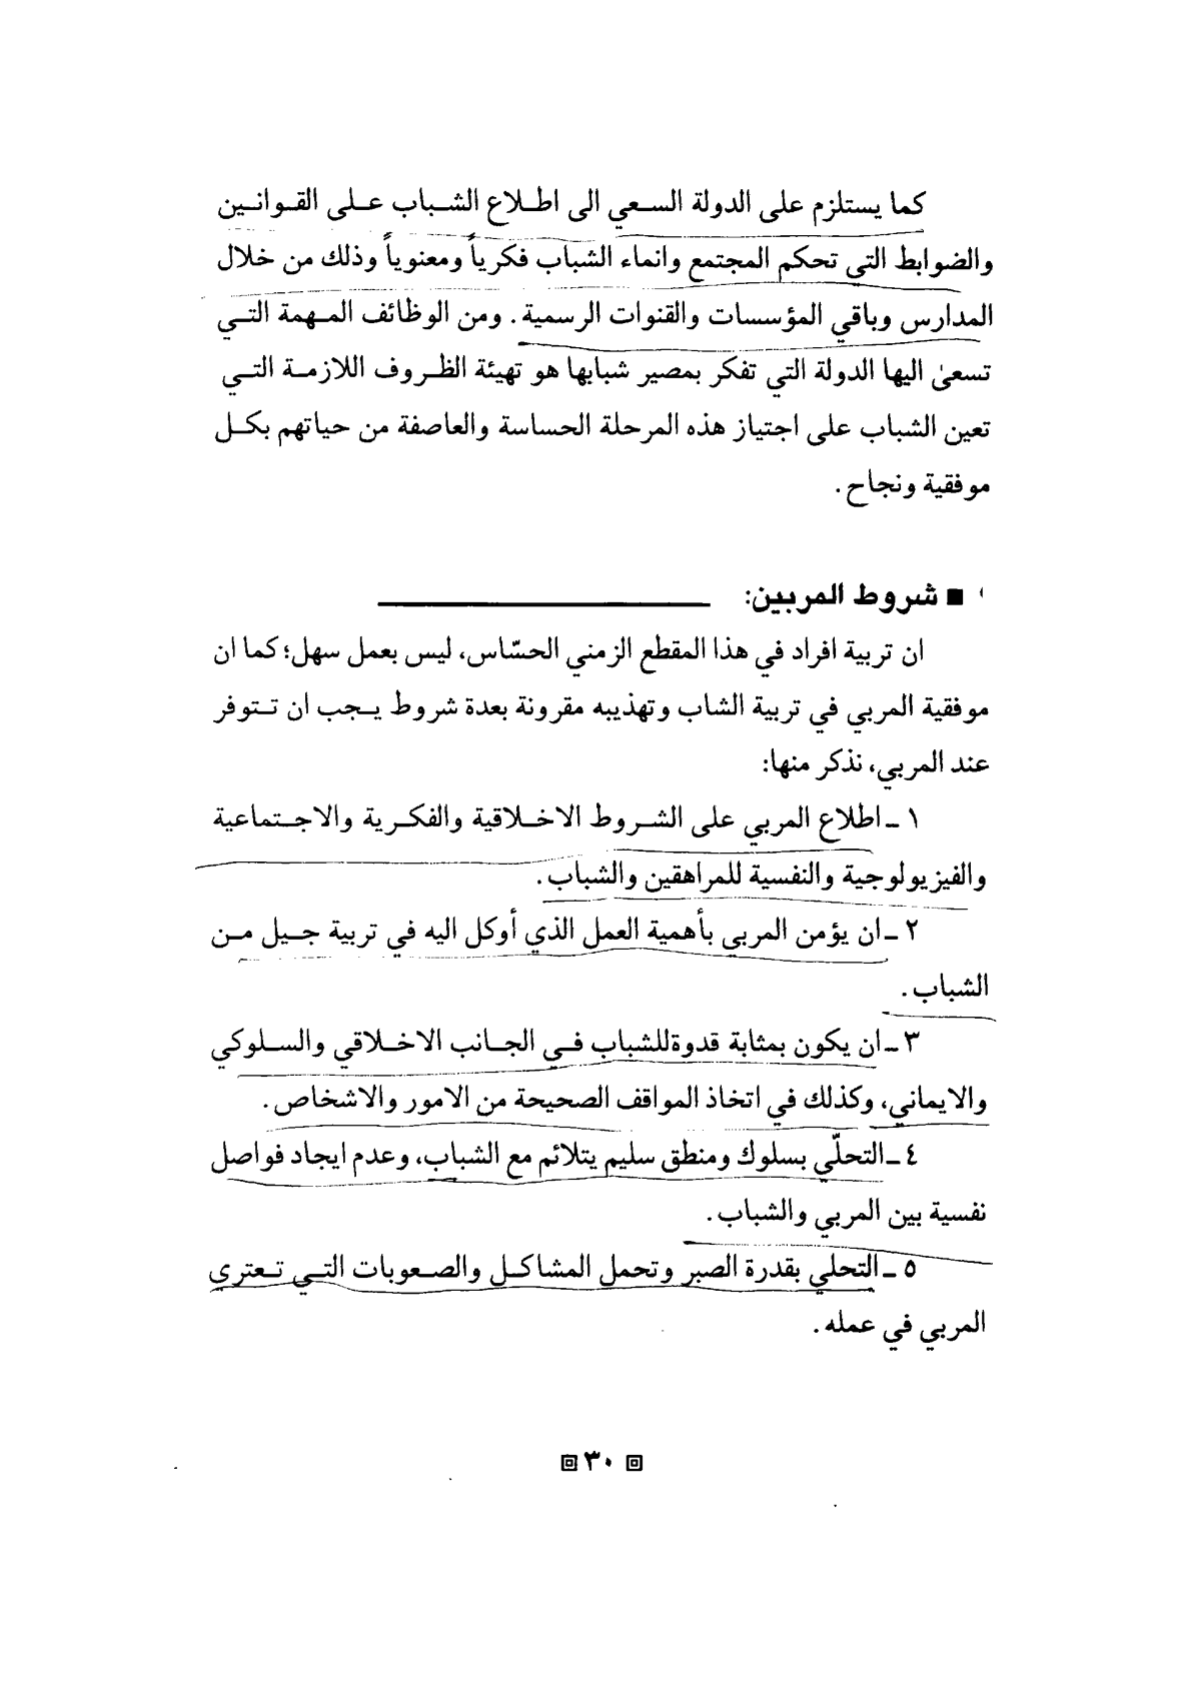 كما يستلزم على الدولة السعي الى اطلاع الشباب على القوانين
والضوابط التي تحكم المجتمع وانماء الشباب فكرياً ومعنوياً وذلك من خلال
المدارس وباقي المؤسسات والقنوات الرسمية. ومن الوظائف المهمة التي
تسعىٰ اليها الدولة التي تفكر بمصير شبابها هو تهيئة الظروف اللازمة التي
تعين الشباب على اجتياز هذه المرحلة الحساسة والعاصفة من حياتهم بكل
موفقية ونجاح.
■ شروط المربين:
ان تربية افراد في هذا المقطع الزمني الحسّاس، ليس بعمل سهل؛ كما ان
موفقية المربي في تربية الشاب وتهذيبه مقرونة بعدة شروط يجب ان تتوفر
عند المربي، نذكر منها:
١ ـ اطلاع المربي على الشروط الاخلاقية والفكرية والاجتماعية
والفيزيولوجية والنفسية للمراهقين والشباب.
٢ ـ ان يؤمن المربي بأهمية العمل الذي أوكل اليه في تربية جيل من
الشباب.
٣ ـ ان يكون بمثابة قدوة للشباب في الجانب الاخلاقي والسلوكي
والايماني، وكذلك في اتخاذ المواقف الصحيحة من الامور والاشخاص.
٤ ـ التحلّي بسلوك ومنطق سليم يتلائم مع الشباب، وعدم ايجاد فواصل
نفسية بين المربي والشباب.
٥ ـ التحلي بقدرة الصبر وتحمل المشاكل والصعوبات التي تعتري
المربي في عمله.
٣٠